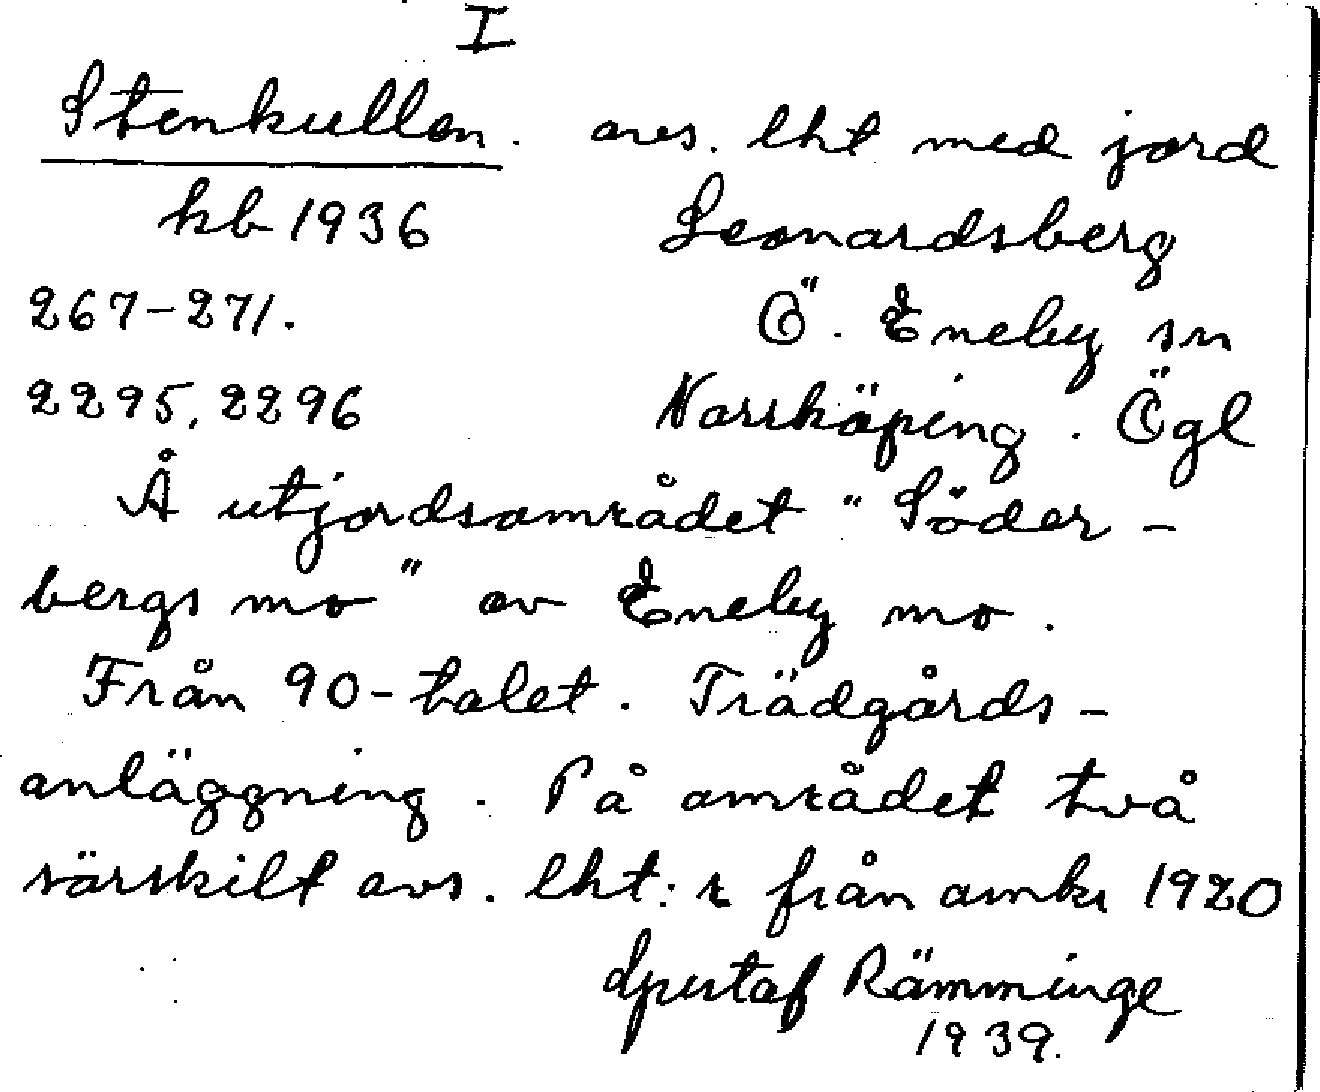 I
Stenkullen. avs. lht med jord
kb 1936 Leonardsberg
267-271. Ö. Eneby sn
2295, 2296 Norrköping. Ögl
Å utjordsområdet "Söder-
bergs mo" av Eneby mo.
Från 90-talet. Trädgårds-
anläggning. På området två
särskilt avs. lht:r från omkr 1920
Gustaf Rämminge
1939.